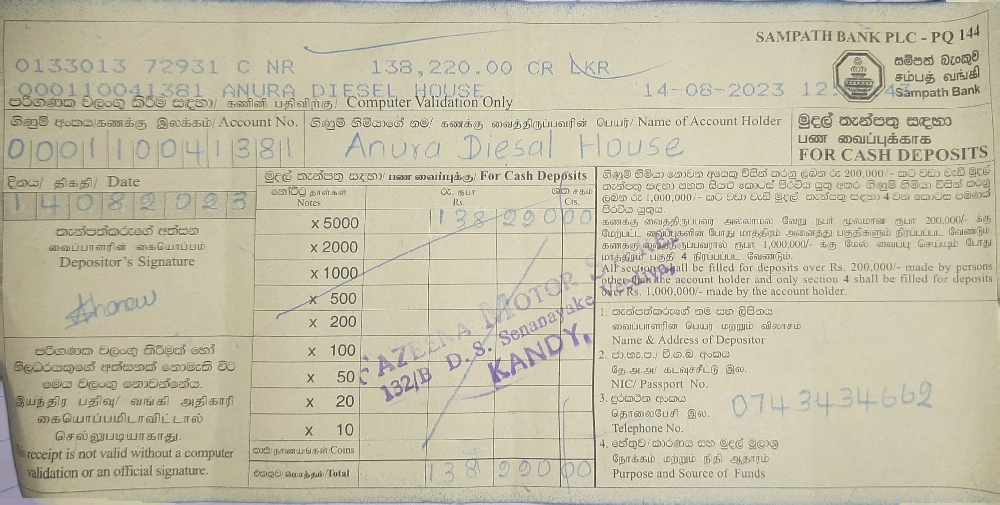 SAMPATH BANK PLC - PQ 144
සම්පත් බැංකුව
சம்பத் வங்கி
Sampath Bank
0133013 72931 C NR 138,220.00 CR LKR
000110041381 ANURA DIESEL HOUSE 14-08-2023 12
පරිගණක වලංගු කිරීම සඳහා/ கணினி பதிவிற்கு/ Computer Validation Only
ගිණුම් අංකය/கணக்கு இலக்கம்/ Account No.
000110041381
ගිණුම් හිමියාගේ නම/ கணக்கு வைத்திருப்பவரின் பெயர்/ Name of Account Holder
Anura Diesal House
මුදල් තැන්පතු සඳහා
பண வைப்புக்காக
FOR CASH DEPOSITS
දිනය/ திகதி/ Date
14082023
තැන්පත්කරුගේ අත්සන
வைப்பாளரின் கையொப்பம்
Depositor's Signature
පරිගණක වලංගු කිරීමක් හෝ
නිලධරයකුගේ අත්සනක් නොමැති විට
මෙය වලංගු නොවන්නේය.
இயந்திர பதிவு/ வங்கி அதிகாரி
கையொப்பமிடாவிட்டால்
செல்லுபடியாகாது.
receipt is not valid without a computer
validation or an official signature.
මුදල් තැන්පතු සඳහා/ பண வைப்புக்கு/ For Cash Deposits
නෝට්ටු தாள்கள் Notes
රු. ரூபா Rs.
ශත சதம் Cts.
x 5000 138 220 00
x 2000
x 1000
x 500
x 200
x 100
x 50
x 20
x 10
කාසි/நாணயங்கள்/Coins
එකතුව/மொத்தம்/Total 138 220 00
FAZEENA MOTOR
132/B D. S. Senanayake Vediya,
KANDY.
ගිණුම් හිමියා නොවන අයෙකු විසින් කරනු ලබන රු 200,000/- කට වඩා වැඩි මුදල්
තැන්පතු සඳහා පහත සියළු කොටස් පිරවිය යුතු අතර ගිණුම් හිමියා විසින් කරනු
ලබන රු 1,000,000/- කට වඩා වැඩි මුදල් තැන්පතු සඳහා 4 වන කොටස පමණක්
පිරවිය යුතුය.
கணக்கு வைத்திருப்பவர் அல்லாமல் வேறு நபர் மூலமான ரூபா 200,000/- க்கு
மேற்பட்ட வைப்புகளின் போது மாத்திரம் அனைத்து பகுதிகளும் நிரப்பப்படல் வேண்டும்.
கணக்கு வைத்திருப்பவரால் ரூபா 1,000,000/- க்கு மேல் வைப்பு செய்யும் போது
மாத்திரம் பகுதி 4 நிரப்பப்பட வேண்டும்.
All sections shall be filled for deposits over Rs. 200,000/- made by persons
other than the account holder and only section 4 shall be filled for deposits
over Rs. 1,000,000/- made by the account holder.
1. තැන්පත්කරුගේ නම සහ ලිපිනය
வைப்பாளரின் பெயர் மற்றும் விலாசம்
Name & Address of Depositor
2. ජා.හැ.ප./ වි.ග.බ අංකය
தே.அ.அ/ கடவுச்சீட்டு இல.
NIC/ Passport No.
3. දුරකථන අංකය
தொலைபேசி இல.
Telephone No.
0743434662
4. හේතුව/කාරණය සහ මුදල් මූලාශ්‍ර
நோக்கம் மற்றும் நிதி ஆதாரம்
Purpose and Source of Funds